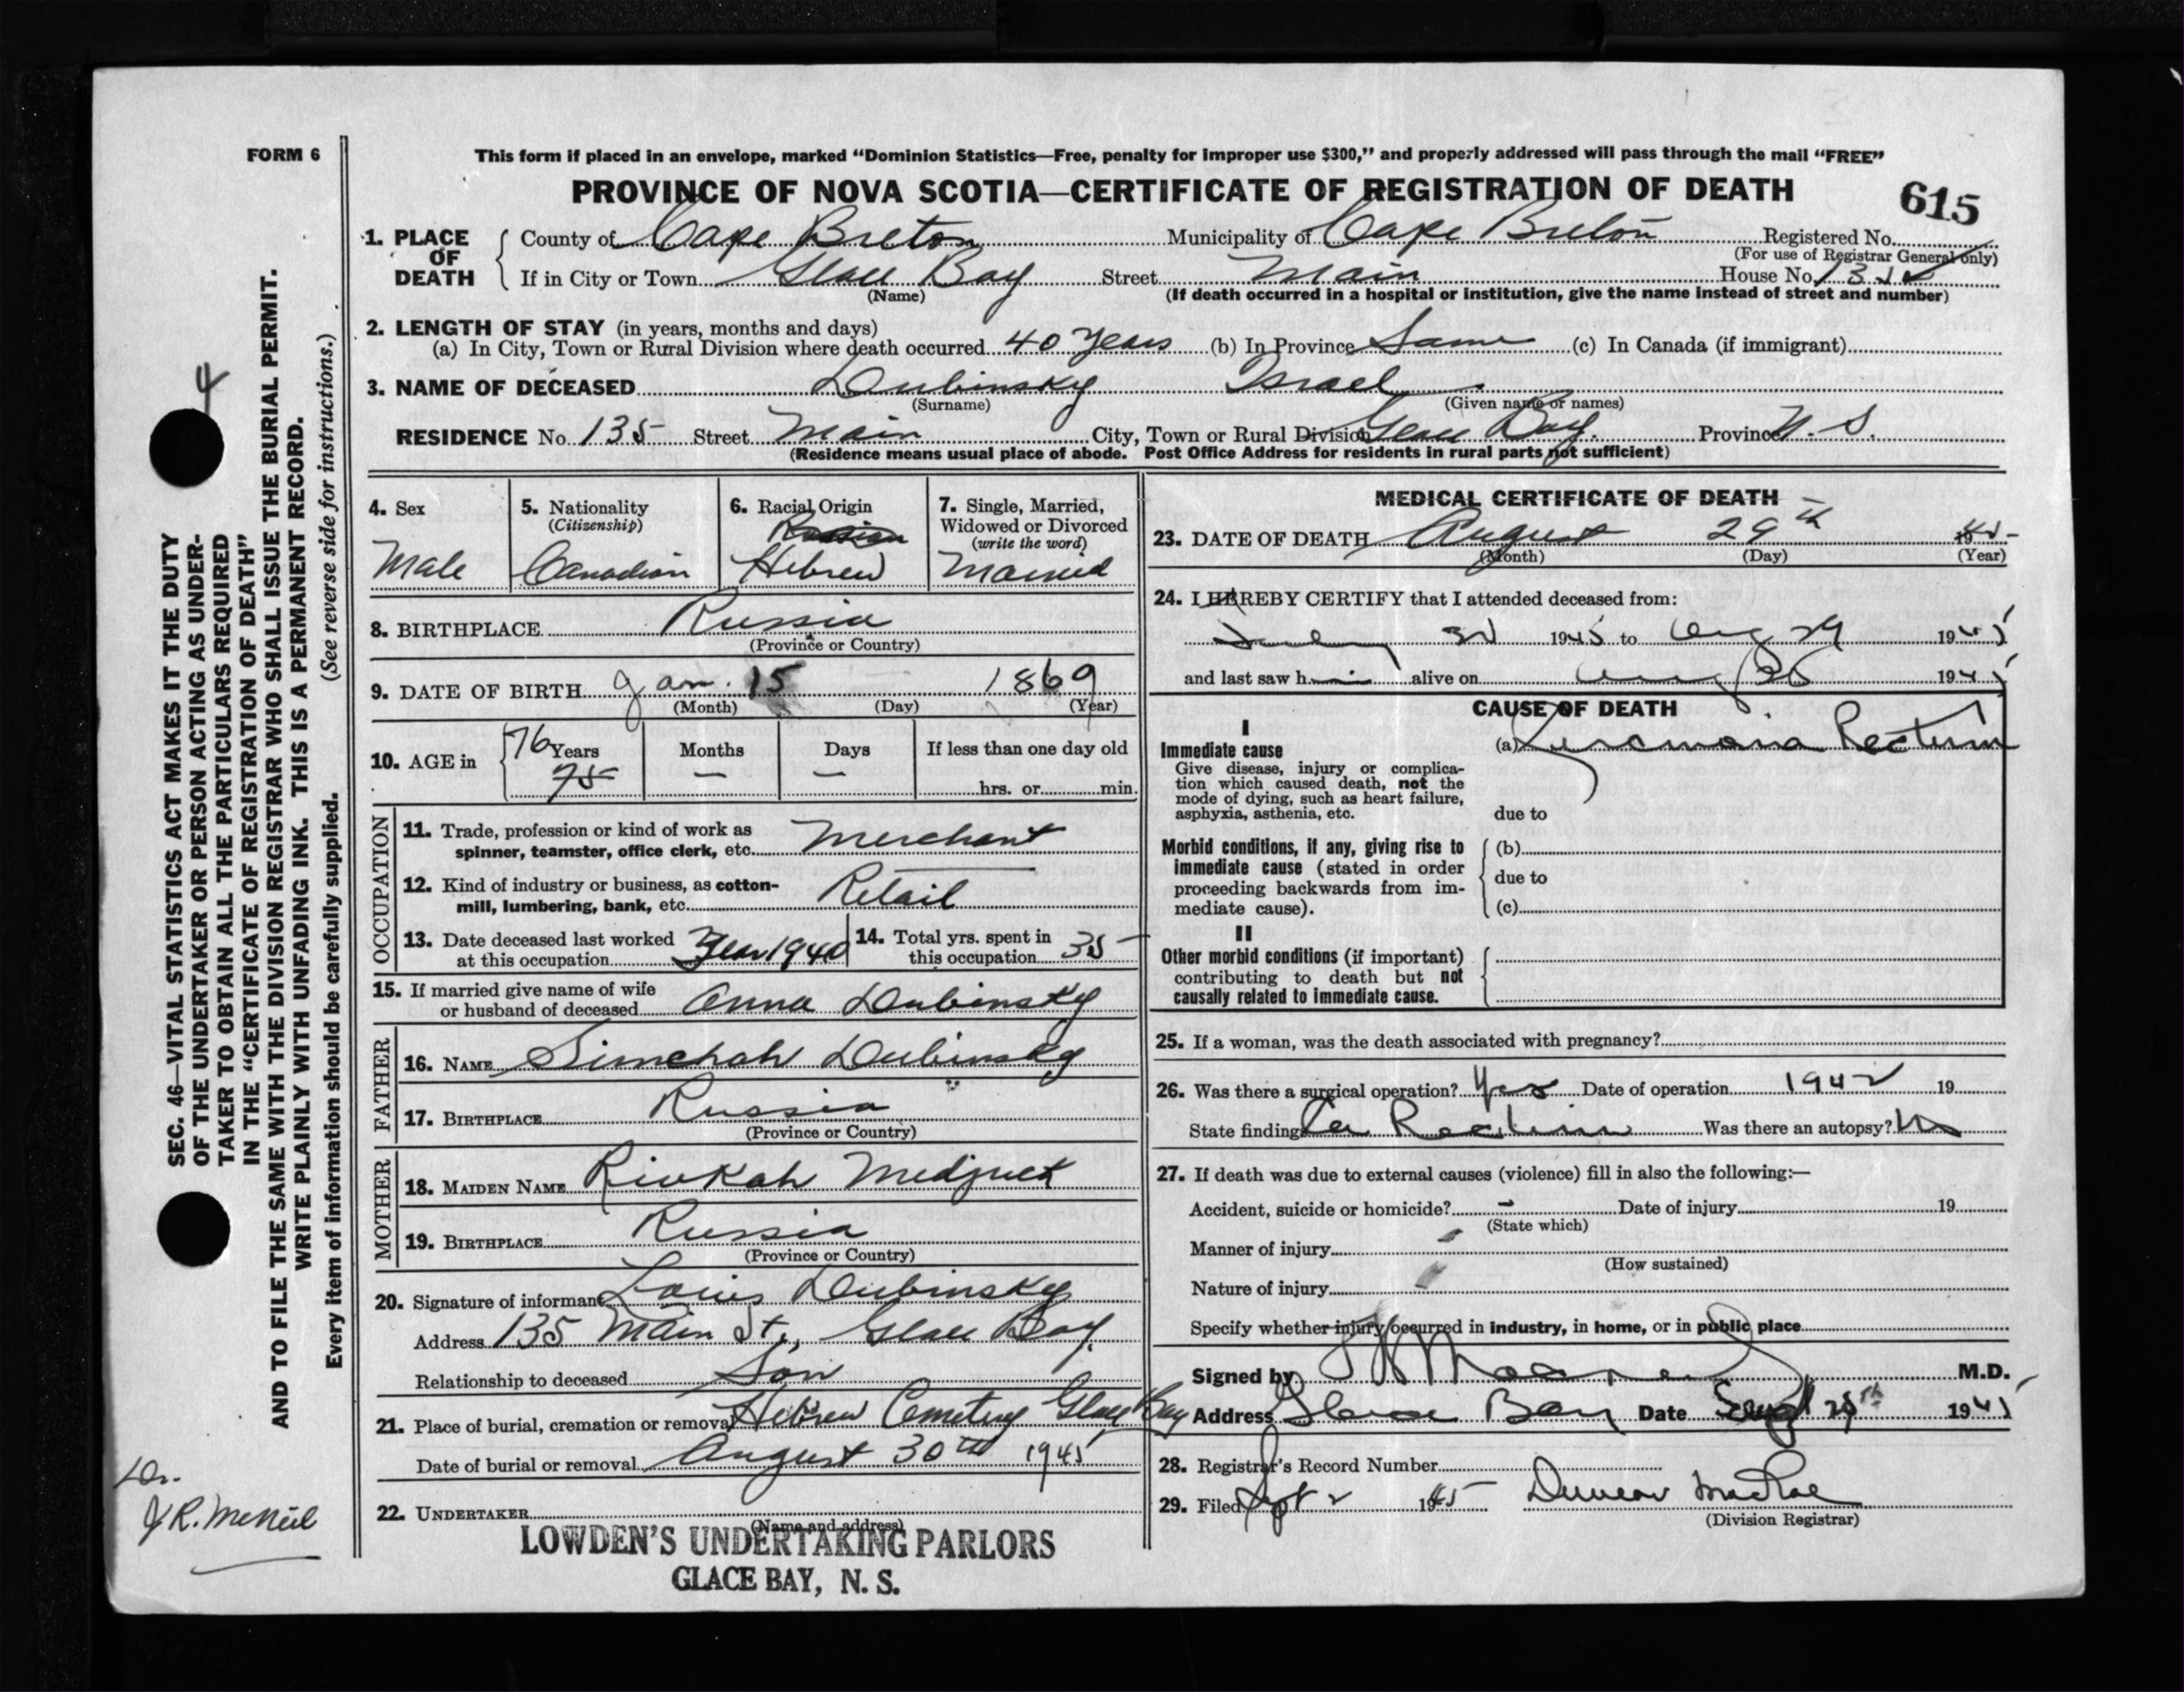 FORM 6
This form if placed in an envelope, marked “Dominion Statistics—Free, penalty for improper use $300,” and properly addressed will pass through the mail “FREE”
PROVINCE OF NOVA SCOTIA—CERTIFICATE OF REGISTRATION OF DEATH
615
1. PLACE OF DEATH County of Cape Breton Municipality of Cape Breton Registered No.
(For use of Registrar General only)
If in City or Town Glace Bay Street Main House No.
(Name) (If death occurred in a hospital or institution, give the name instead of street and number)
2. LENGTH OF STAY (in years, months and days)
(a) In City, Town or Rural Division where death occurred 40 years (b) In Province Same (c) In Canada (if immigrant)
3. NAME OF DECEASED Dubinsky Israel
(Surname) (Given name or names)
RESIDENCE No. 135 Street Main City, Town or Rural Division Glace Bay. Province N. S.
(Residence means usual place of abode. Post Office Address for residents in rural parts not sufficient)
4. Sex
Male
5. Nationality
(Citizenship)
Canadian
6. Racial Origin
Russian
Hebrew
7. Single, Married,
Widowed or Divorced
(write the word)
Married
8. BIRTHPLACE Russia
(Province or Country)
9. DATE OF BIRTH Jan. 15 1869
(Month) (Day) (Year)
10. AGE in 76 Years Months Days If less than one day old
75 — — hrs. or min.
OCCUPATION
11. Trade, profession or kind of work as
spinner, teamster, office clerk, etc. Merchant
12. Kind of industry or business, as cotton-
mill, lumbering, bank, etc. Retail
13. Date deceased last worked
at this occupation Year 1940
14. Total yrs. spent in
this occupation 35
15. If married give name of wife
or husband of deceased Anna Dubinsky
FATHER
16. NAME Simchah Dubinsky
17. BIRTHPLACE Russia
(Province or Country)
MOTHER
18. MAIDEN NAME Rivkah Medjuck
19. BIRTHPLACE Russia
(Province or Country)
20. Signature of informant Louis Dubinsky
Address 135 Main St., Glace Bay.
Relationship to deceased Son
21. Place of burial, cremation or removal Hebrew Cemetery Glace Bay
Date of burial or removal August 30th 1945
22. UNDERTAKER
(Name and address)
LOWDEN'S UNDERTAKING PARLORS
GLACE BAY, N. S.
MEDICAL CERTIFICATE OF DEATH
23. DATE OF DEATH August 29th 1945
(Month) (Day) (Year)
24. I HEREBY CERTIFY that I attended deceased from:
1945 to Aug 29 1945
and last saw him alive on Aug 1945
CAUSE OF DEATH
I
Immediate cause
Give disease, injury or complica-
tion which caused death, not the
mode of dying, such as heart failure,
asphyxia, asthenia, etc.
(a) Carcinoma Rectum
due to
Morbid conditions, if any, giving rise to
immediate cause (stated in order
proceeding backwards from im-
mediate cause).
(b)
due to
(c)
II
Other morbid conditions (if important)
contributing to death but not
causally related to immediate cause.
25. If a woman, was the death associated with pregnancy?
26. Was there a surgical operation? Yes Date of operation 1942 19
State findings Ca Rectum Was there an autopsy? No
27. If death was due to external causes (violence) fill in also the following:—
Accident, suicide or homicide? - Date of injury 19
(State which)
Manner of injury
(How sustained)
Nature of injury
Specify whether injury occurred in industry, in home, or in public place
Signed by M.D.
Address Glace Bay Date 1945
28. Registrar's Record Number
29. Filed Sept 2 1945 Duncan MacRae
(Division Registrar)
SEC. 46—VITAL STATISTICS ACT MAKES IT THE DUTY
OF THE UNDERTAKER OR PERSON ACTING AS UNDER-
TAKER TO OBTAIN ALL THE PARTICULARS REQUIRED
IN THE “CERTIFICATE OF REGISTRATION OF DEATH”
AND TO FILE THE SAME WITH THE DIVISION REGISTRAR WHO SHALL ISSUE THE BURIAL PERMIT.
WRITE PLAINLY WITH UNFADING INK. THIS IS A PERMANENT RECORD.
Every item of information should be carefully supplied. (See reverse side for instructions.)
4
Dr.
J R. McNeil